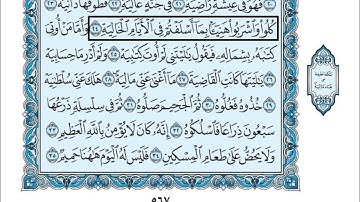 فَهُوَ فِي عِيشَةٍ رَّاضِيَةٍ ٢١ فِي جَنَّةٍ عَالِيَةٍ ٢٢ قُطُوفُهَا دَانِيَةٌ ٢٣
كُلُوا۟ وَٱشْرَبُوا۟ هَنِيٓـًٔۢا بِمَآ أَسْلَفْتُمْ فِي ٱلْأَيَّامِ ٱلْخَالِيَةِ ٢٤ وَأَمَّا مَنْ أُوتِيَ
كِتَـٰبَهُۥ بِشِمَالِهِۦ فَيَقُولُ يَـٰلَيْتَنِي لَمْ أُوتَ كِتَـٰبِيَهْ ٢٥ وَلَمْ أَدْرِ مَا حِسَابِيَهْ
٢٦ يَـٰلَيْتَهَا كَانَتِ ٱلْقَاضِيَةَ ٢٧ مَآ أَغْنَىٰ عَنِّي مَالِيَهْ ٢٨ هَلَكَ عَنِّي سُلْطَـٰنِيَهْ
٢٩ خُذُوهُ فَغُلُّوهُ ٣٠ ثُمَّ ٱلْجَحِيمَ صَلُّوهُ ٣١ ثُمَّ فِي سِلْسِلَةٍ ذَرْعُهَا
سَبْعُونَ ذِرَاعًا فَٱسْلُكُوهُ ٣٢ إِنَّهُۥ كَانَ لَا يُؤْمِنُ بِٱللَّهِ ٱلْعَظِيمِ
٣٣ وَلَا يَحُضُّ عَلَىٰ طَعَامِ ٱلْمِسْكِينِ ٣٤ فَلَيْسَ لَهُ ٱلْيَوْمَ هَـٰهُنَا حَمِيمٌ ٣٥
٥٦٧